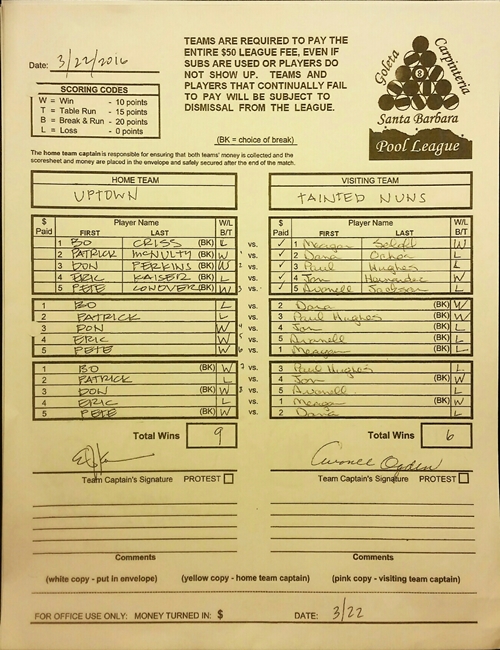 Date: 3/22/2016
TEAMS ARE REQUIRED TO PAY THE
ENTIRE $50 LEAGUE FEE, EVEN IF
SUBS ARE USED OR PLAYERS DO
NOT SHOW UP. TEAMS AND
PLAYERS THAT CONTINUALLY FAIL
TO PAY WILL BE SUBJECT TO
DISMISSAL FROM THE LEAGUE.
(BK = choice of break)
Goleta Carpinteria
8
Santa Barbara
Pool League
SCORING CODES
W = Win - 10 points
T = Table Run - 15 points
B = Break & Run - 20 points
L = Loss - 0 points
The home team captain is responsible for ensuring that both teams' money is collected and the
scoresheet and money are placed in the envelope and safely secured after the end of the match.
HOME TEAM VISITING TEAM
UPTOWN TAINTED NUNS
$ Paid Player Name FIRST LAST W/L B/T $ Paid Player Name FIRST LAST W/L B/T
1 BO CRISS (BK) L vs. ✓ 1 Meagan W
2 PATRICK McNULTY (BK) W vs. ✓ 2 Dana Ochoa L
3 DON PERKINS (BK) W vs. ✓ 3 Paul Hughes L
4 ERIC KAISER (BK) L vs. ✓ 4 Jon Hernandez W
5 PETE CONOVER (BK) W vs. ✓ 5 Avonell Jackson L
1 BO L vs. 2 Dana (BK) W
2 PATRICK L vs. 3 Paul Hughes (BK) W
3 DON W vs. 4 Jon (BK) L
4 ERIC W vs. 5 Avonell (BK) L
5 PETE W vs. 1 Meagan (BK) L
1 BO (BK) W vs. 3 Paul Hughes L
2 PATRICK L vs. 4 Jon (BK) W
3 DON (BK) W vs. 5 Avonell L
4 ERIC L vs. 1 (BK) W
5 PETE (BK) W vs. 2 Dana L
Total Wins 9 Total Wins 6
Team Captain's Signature PROTEST Team Captain's Signature PROTEST
Comments Comments
(white copy - put in envelope) (yellow copy - home team captain) (pink copy - visiting team captain)
FOR OFFICE USE ONLY: MONEY TURNED IN: $ DATE: 3/22